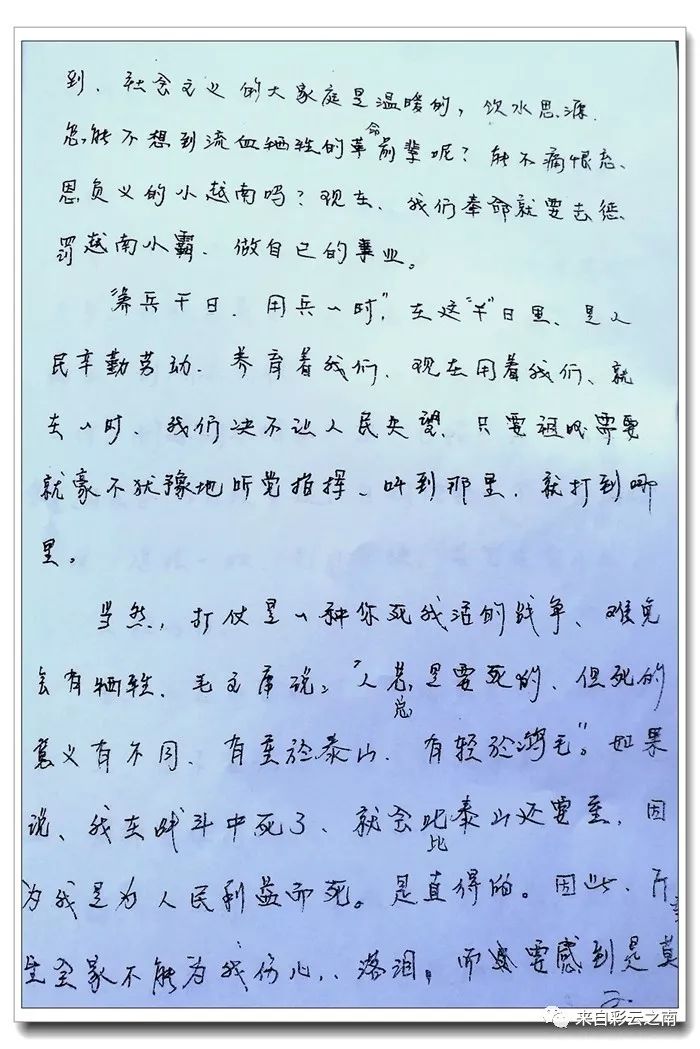 到、社会主义的大家庭是温暖的，饮水思源.
怎能不想到流血牺牲的革命前辈呢？能不痛恨忘
恩负义的小越南吗？现在、我们奉命就要去惩
罚越南小霸.做自己的事业。
“养兵千日.用兵一时”，在这“千”日里、是人
民辛勤劳动.养育着我们、现在用着我们、就
在一时、我们决不让人民失望、只要祖国需要
就豪不犹豫地听党指挥、叫到那里.就打到哪
里。
当然，打仗是一种你死我活的战争、难免
会有牺牲.毛主席说：“人总是要死的、但死的
总
意义有不同.有重於泰山.有轻於鸿毛”。如果
说、我在战斗中死了、就会比泰山还要重、因
比
为我是为人民利益而死。是直得的。因此、万
全家不能为我伤心、落泪，而要感到是莫
2.
来自彩云之南